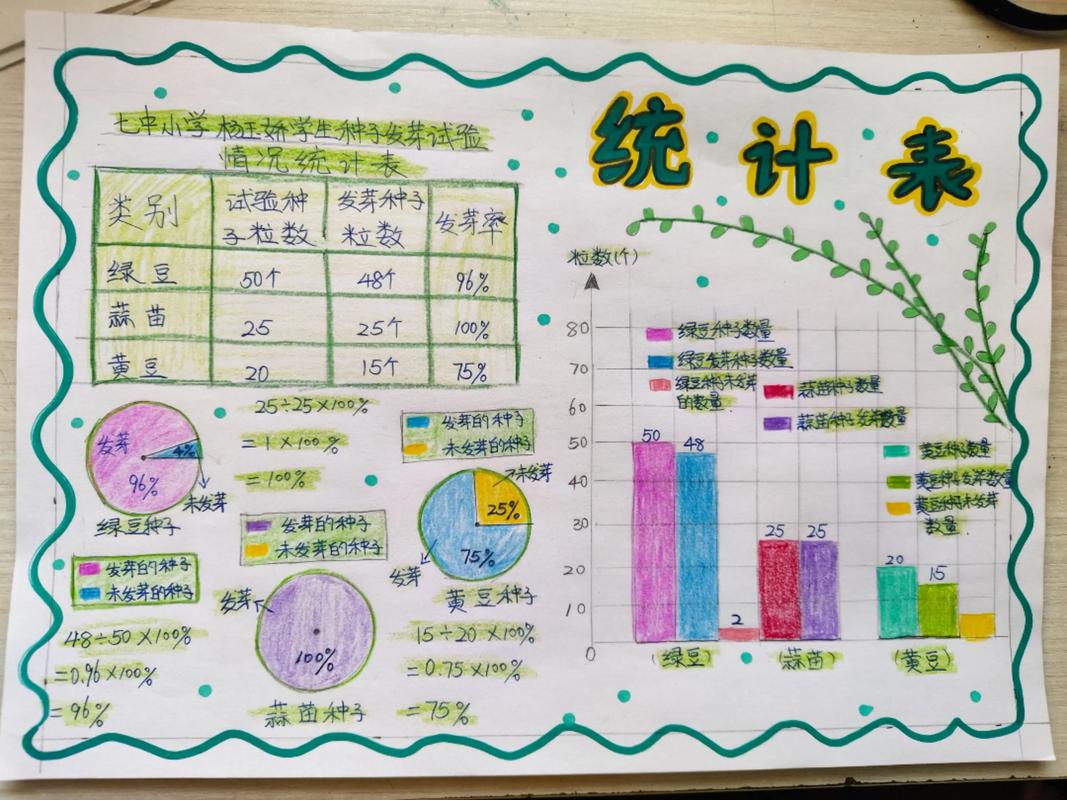 七中小学杨玉娇学生种子发芽试验
情况统计表
类别 试验种子粒数 发芽种子粒数 发芽率
绿豆 50个 48个 96%
蒜苗 25 25个 100%
黄豆 20 15个 75%
发芽
4%
96%
未发芽
绿豆种子
发芽的种子
未发芽的种子
48÷50×100%
=0.96×100%
=96%
25÷25×100%
=1×100%
=100%
发芽的种子
未发芽的种子
发芽
100%
蒜苗种子
发芽的种子
未发芽的种子
未发芽
25%
75%
发芽
黄豆种子
15÷20×100%
=0.75×100%
=75%
统计表
粒数(个)
80
70
60
50
40
30
20
10
0
绿豆种子数量
绿豆发芽种子数量
绿豆种子未发芽
的数量
蒜苗种子数量
蒜苗种子发芽数量
黄豆种子数量
黄豆种子发芽数量
黄豆种子未发芽
数量
50
48
2
25
25
20
15
(绿豆)
(蒜苗)
(黄豆)